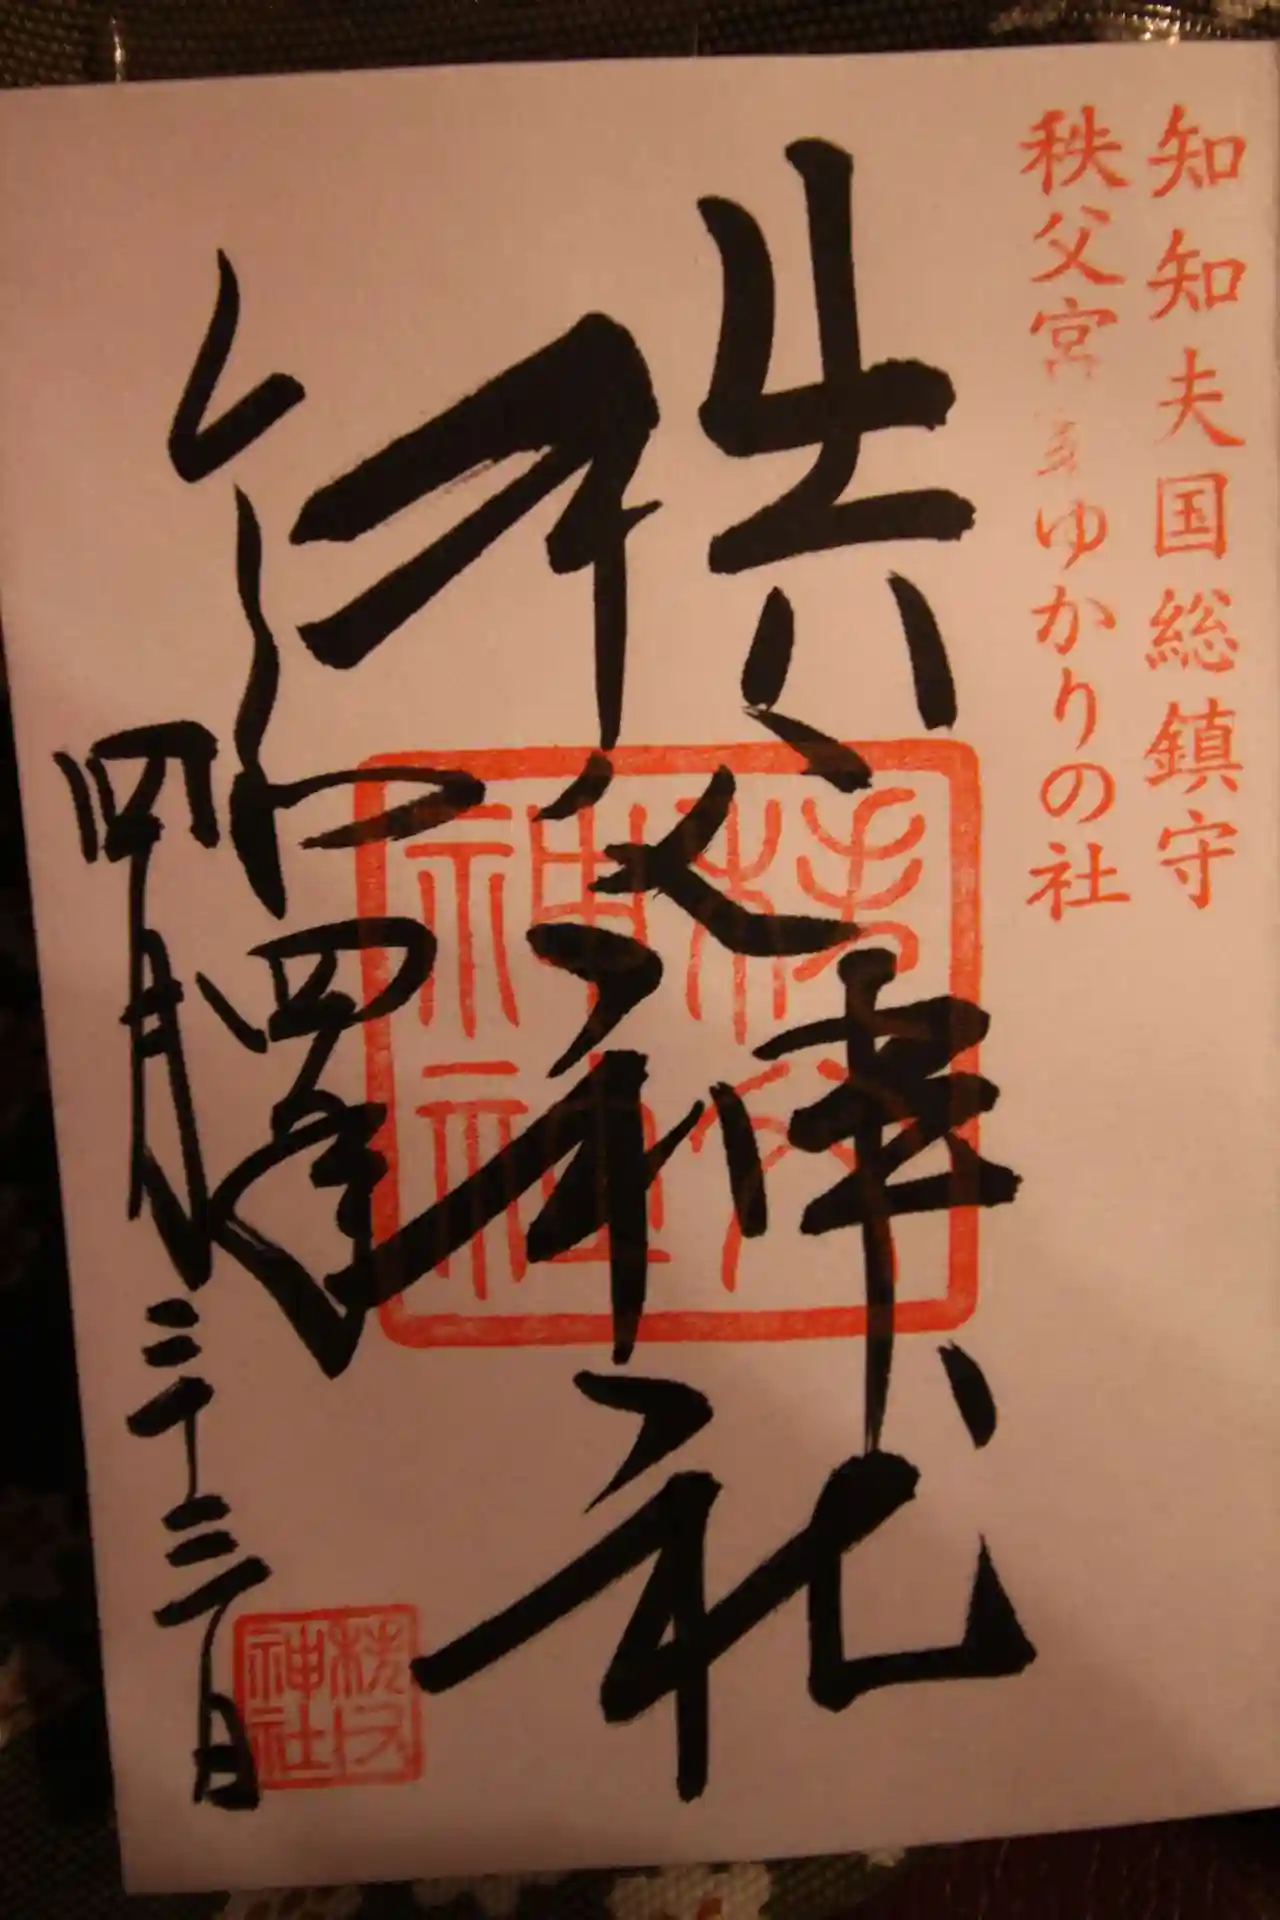 知知夫国総鎮守
秩父宮家ゆかりの社
秩父神社
令和四年
四月二十三日
秩父神社
秩父神社